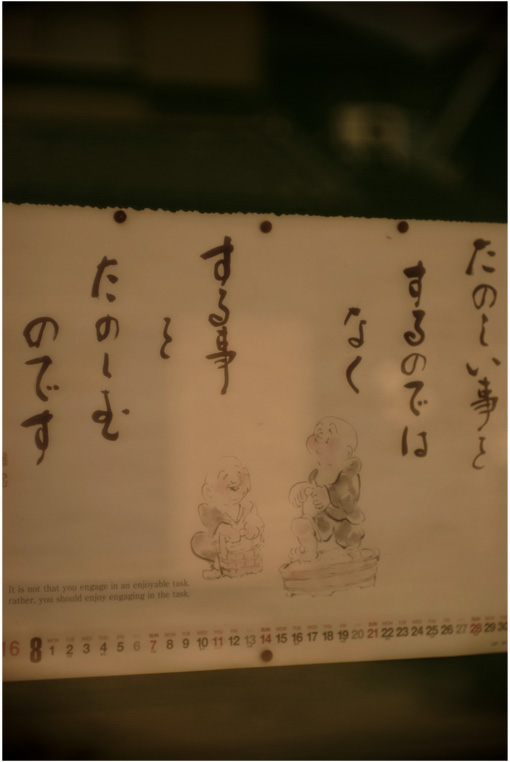 たのしい事を
するのでは
なく
する事
を
たのしむ
のです
It is not that you engage in an enjoyable task,
rather, you should enjoy engaging in the task.
16 8 1 2 3 4 5 6 7 8 9 10 11 12 13 14 15 16 17 18 19 20 21 22 23 24 25 26 27 28 29 30